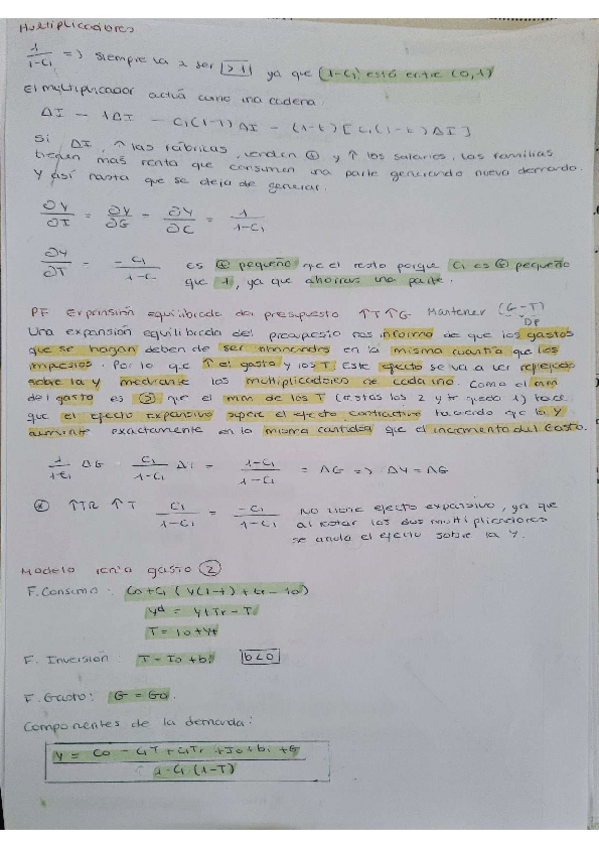 Multiplicadores
1/(1-C1) => siempre va a ser >1 ya que (1-C1) está entre (0,1)
El multiplicador actúa como una cadena:
ΔI - 1ΔI - C1(1-t)ΔI - (1-t)[C1(1-t)ΔI]
Si ΔI, ↑ las fábricas, venden ⊕ y ↑ los salarios, las familias
tienen mas renta que consumen una parte generando nueva demanda.
Y así hasta que se deja de generar.
∂Y/∂I = ∂Y/∂G - ∂Y/∂C = 1/(1-C1)
∂Y/∂T - -C1/(1-C es ⊕ pequeño que el resto porque C1 es ⊕ pequeño
que 1, ya que ahorras una parte.
PF Expansión equilibrada del presupuesto ↑T↑G Mantener (G-T)
DP
Una expansión equilibrada del presupuesto nos informa de que los gastos
que se hagan deben de ser en la misma cuantía que los
impuestos. Por lo que ↑ el gasto y los T. Este efecto se va a ver reflejado
sobre la y mediante los multiplicadores de cada uno. Como el mm
del gasto es ⊕ que el mm de los T (restas los 2 y te queda 1) hace
que el efecto expansivo supere el efecto contractivo haciendo que la Y
aumente exactamente en la misma cantidad que el incremento del Gasto.
1/(1-C1) ΔG C1/(1-C1) Δt = (1-C1)/(1-C1) = ΔG => ΔY = ΔG
↑TR ↑T C1/(1-C1) = -C1/(1-C1) No tiene efecto expansivo, ya que
al restar los dos multiplicadores
se anula el efecto sobre la Y.
Modelo gasto ②
F. Consumo: Co+C1 (Y(1-t) + tr - To)
Yd = Y+Tr-T
T = To+Yt
F. Inversión: I - Io+bi b<0
F. Gasto: G = Go.
Componentes de la demanda:
Y = Co - C1T + C1Tr + Io + bi + G
1-C1 (1-T)